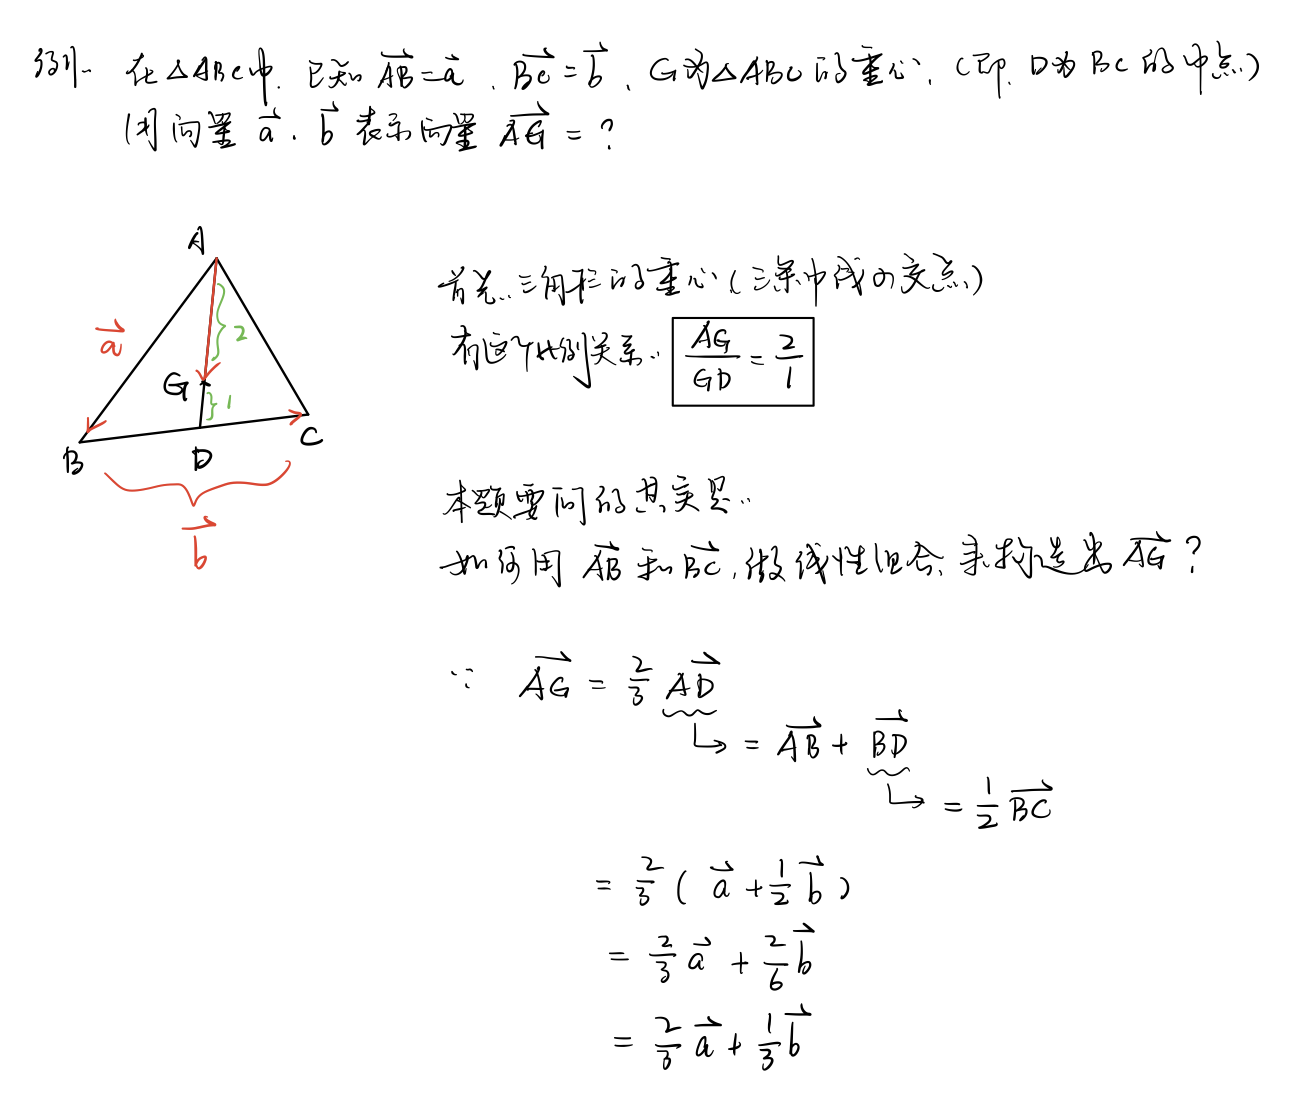 例1. 在△ABC中, 已知 \overrightarrow{AB}=\vec{a}, \overrightarrow{BC}=\vec{b}, G为△ABC的重心, (即, D为BC的中点)
用向量 \vec{a}, \vec{b} 表示向量 \overrightarrow{AG} = ?
A
\vec{a}
2
G
1
B
D
C
\vec{b}
首先.. 三角形的重心 (三条中线の交点)
有这个比例关系.. \frac{AG}{GD} = \frac{2}{1}
本题要问的其实是..
如何用 \overrightarrow{AB} 和 \overrightarrow{BC}, 做线性组合, 来构造出 \overrightarrow{AG} ?
∵ \overrightarrow{AG} = \frac{2}{3} \overrightarrow{AD}
↳ = \overrightarrow{AB} + \overrightarrow{BD}
↳ = \frac{1}{2} \overrightarrow{BC}
= \frac{2}{3} ( \vec{a} + \frac{1}{2} \vec{b} )
= \frac{2}{3} \vec{a} + \frac{2}{6} \vec{b}
= \frac{2}{3} \vec{a} + \frac{1}{3} \vec{b}